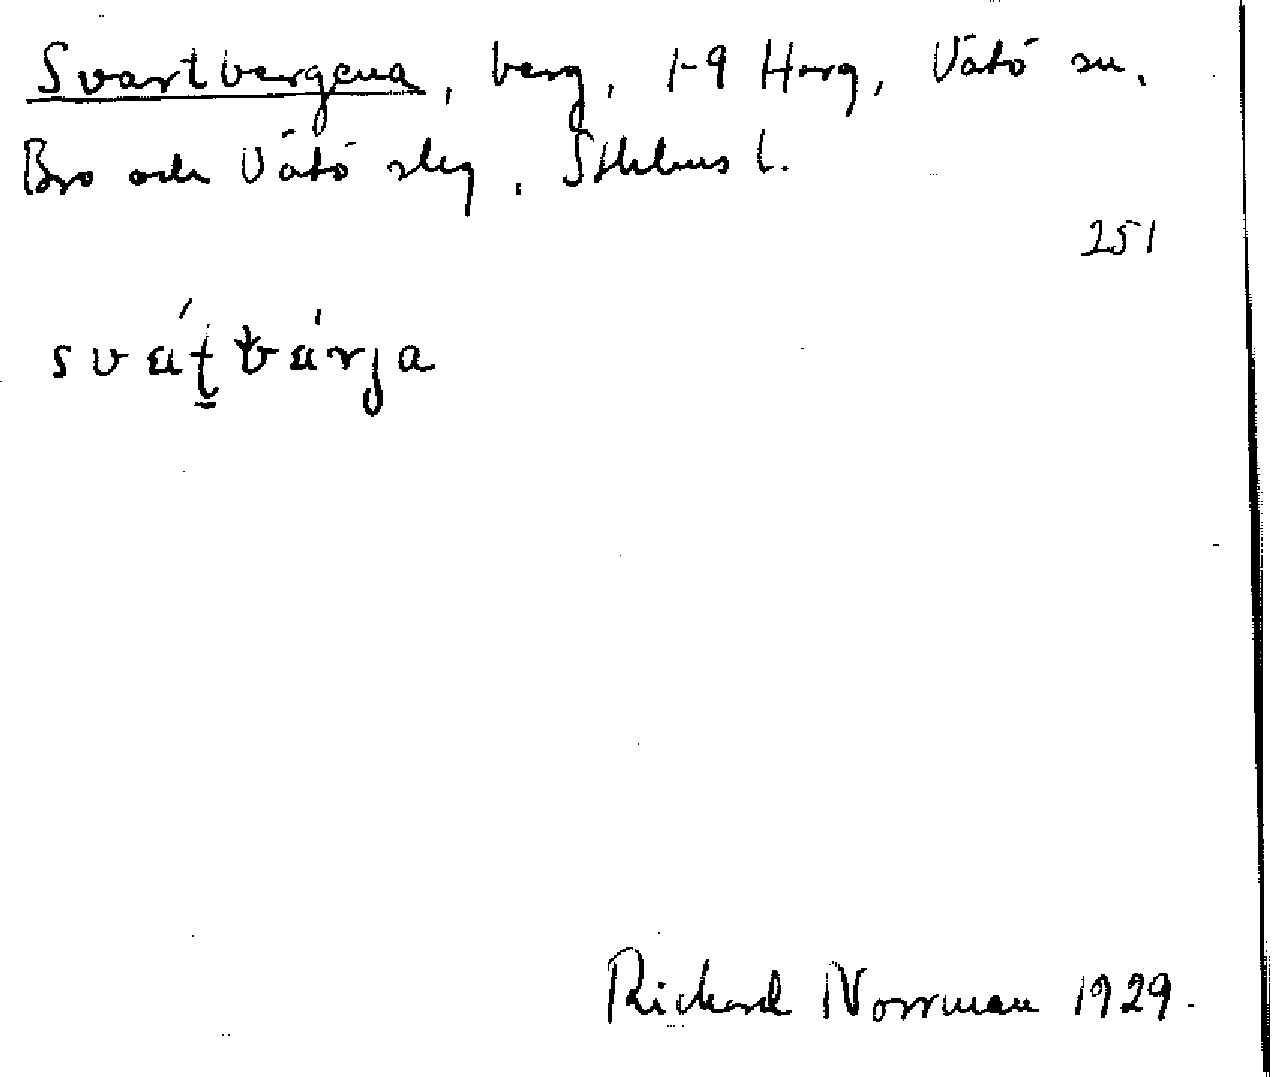 Svartbergena, berg, 1-9 Harg, Vätö sn.
Bro och Vätö skg, Sthlms l.
251
Richard Norrman 1929.